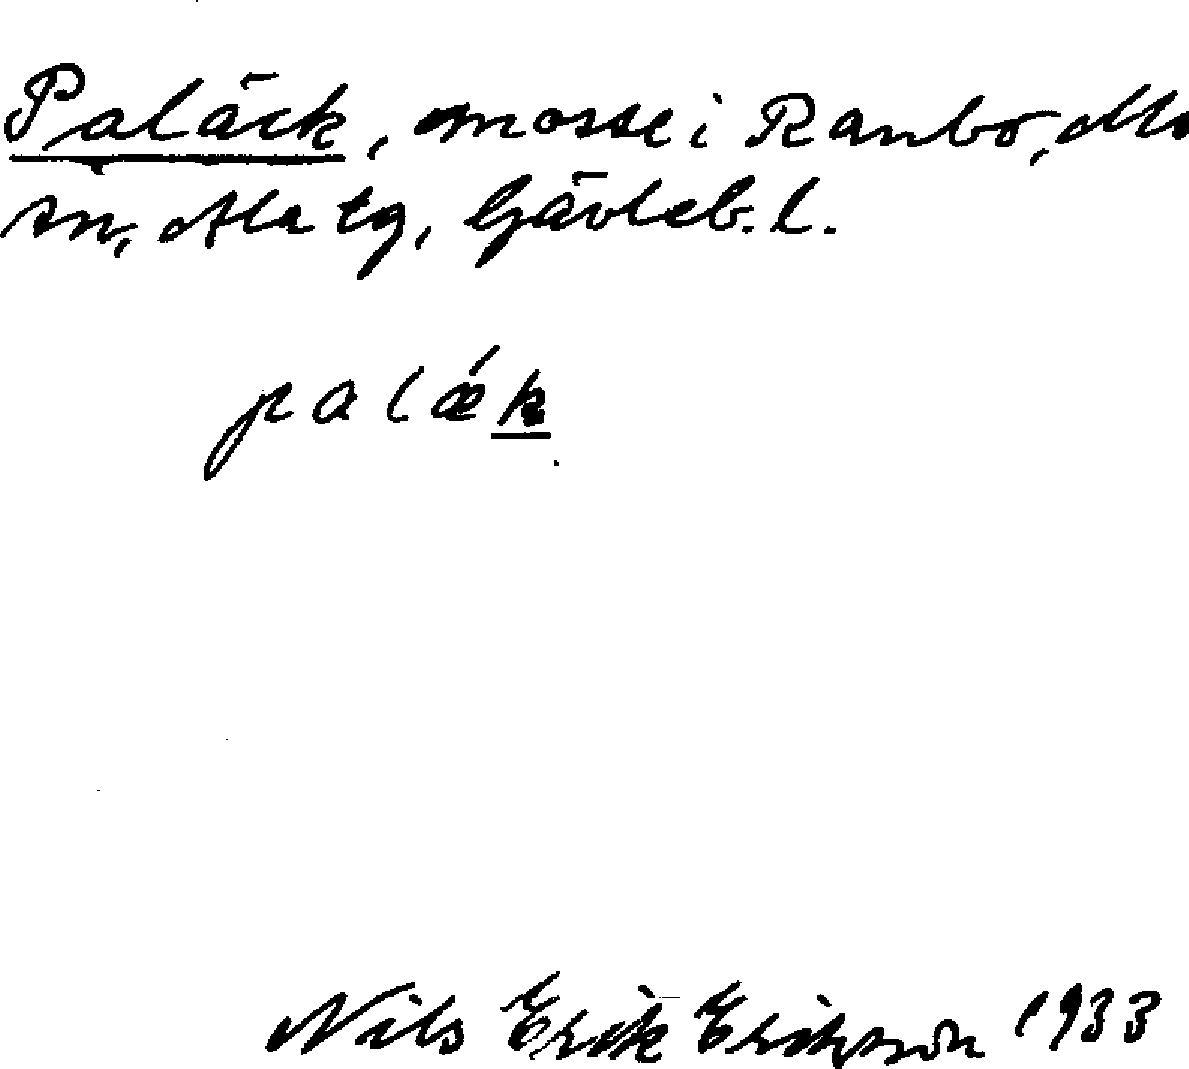 Paläck, mosse i Ranbo, Mo
sn, Ala tg, Gävleb. l.
palǽk
Nils Erik Eriksson 1933